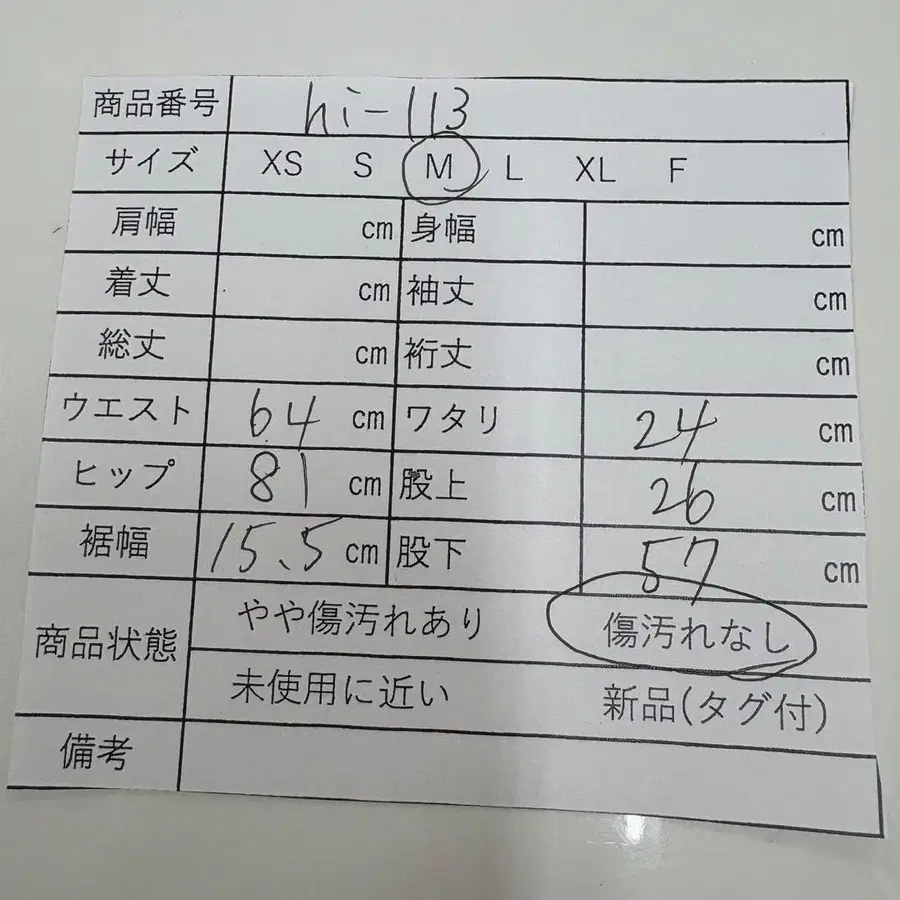 商品番号 hi-113
サイズ XS S M L XL F
肩幅 cm 身幅 cm
着丈 cm 袖丈 cm
総丈 cm 裄丈 cm
ウエスト 64 cm ワタリ 24 cm
ヒップ 81 cm 股上 26 cm
裾幅 15.5 cm 股下 57 cm
商品状態 やや傷汚れあり 傷汚れなし
未使用に近い 新品(タグ付)
備考